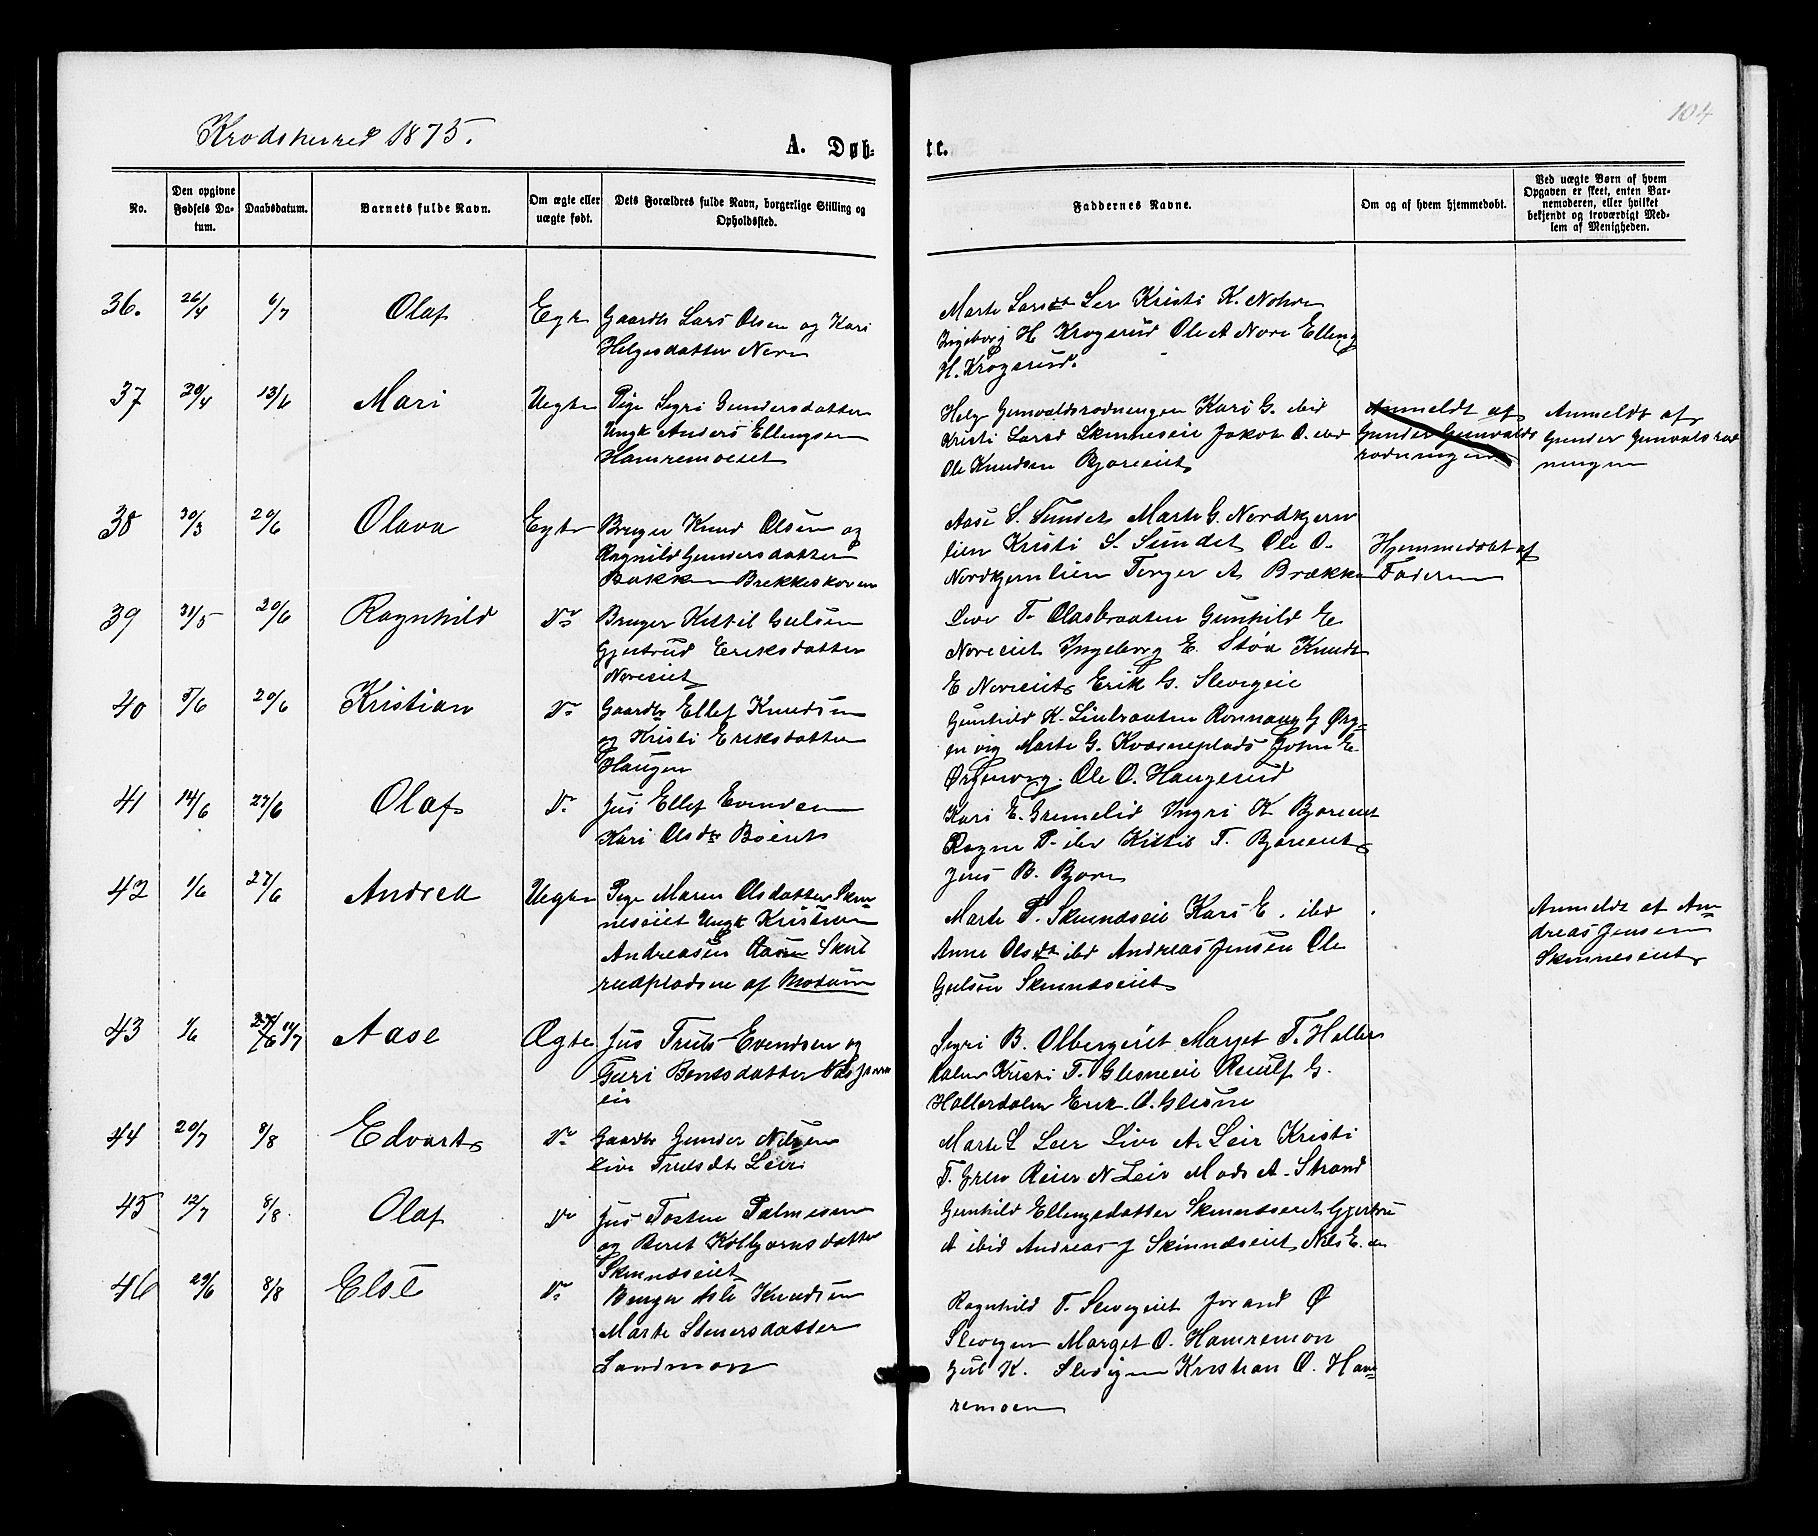 104
Krodsherred 1875.
A. Døb-
te.
No.
Den opgivne Fødsels Da-
tum.
Daabsdatum.
Barnets fulde Navn.
Om ægte eller uægte født.
Dets Forældres fulde Navn, borgerlige Stilling og Opholdssted.
Faddernes Navne.
Om og af hvem hjemmedøbt.
Ved uægte Børn af hvem
Opgaven er skeet, enten Bar-
nemoderen, eller hvilket
bekjendt og troværdigt Med-
lem af Menigheden.
36. 26/4 6/7 Olaf Egte Gaardbr Lars Olsen og Kari
Helgesdatter Nere
Marte Larsdt Ler Kristi K.
Ingeborg H Krogsrud Ole A Nore Elling
H. Krogsrud.
37 /4 13/6 Mari Uegte Pige Sigri Gundersdatter
Ungk Anders Ellingsen
Hamremoeiet
Helge Gunvaldsrodningen Kari G. ibid
Kristi Larsd Skinneseie Jakob O. ibid
Ole Knudsen Bjoreeiet
Anmeldt af
Gunder Gunvalds
rodningen
Anmeldt af
Gunder Gunvalsrod
ningen
38 30/3 20/6 Olava Egte Bruger Knud Olsen og
Ragnild Gundersdatter
Bakken Brekkeskoven
Aase S. Sundet Marte G. Nordkjern
lien Kristi S. Sundet Ole O.
Nordkjernlien Torger A Brække
Hjemmedøbt af
Faderen
39 31/5 20/6 Ragnhild Do Bruger Kittil Gulsen
Gjertrud Eriksdatter
Noreeiet
Live T. Olasbraaten Gunhild E
Noreeiet Ingeborg E. Støa Knudt
E Noreeiet Erik G. Slevigeie
40 5/6 20/6 Kristian Do Gaardbr Ellef Knudsen
og Kristi Eriksdatter
Haugen
Gunhild K. Linbraaten Ronnaug G Ørg-
envig Marte G. Kværneplads John E
Ørgenvig. Ole O. Haugerud
41 14/6 27/6 Olaf Do Jus Ellef Evensen
Kari Olsdtr Bøeiet
Kari E. Gremelid Ingri K Bjoreeiet
Ragne P. ibid Kittil T. Bjoreeiet
Jens B. Bjore
42 1/6 27/6 Andrea Uegte Pige Maren Olsdatter Skin-
neseiet Ungk Kristian
Andreasen Aasen Skut
rudpladsen af Modum
Marte P. Skinnæseie Kari E. ibid
Anne Olsdt ibd Andreas Jensen Ole
Gulsen Skinnæseiet
Anmeldt af An-
dreas Jensen
Skinneseiet
43 1/6 11/7 Aase Ægte Jus Truls Evendsen og
Guri Bentsdatter
eie
Sigri B. Olbergeiet Marget T. Holler
dalen Kristi T. Glesneeie Reiulf G.
Hollerdalen Erik O. Glesne
44 20/7 8/8 Edvart Do Gaardbr Gunder Nilsen
Live Trulsdt Leir
Marte S Leir Live A. Leir Kristi
T. Gren Reier N Leir Mads A. Strand
45 12/7 8/8 Olaf Do Jus Tosten Palmesen
og Beret Kolbjørnsdatter
Skinnæseiet
Gunhild Ellingsdatter Skinnæseiet Gjertru
A ibid Andreas J Skinnæseiet Nils E.
46 29/6 8/8 Else Do Bruger Asle Knudsen
Marte Stenersdatter
Sandmoen
Ragnhild T. Slevigeiet Jorand Ø
Slevigen Marget O. Hamremon
Gul K. Slevigen Kristian O. Ham-
remoen